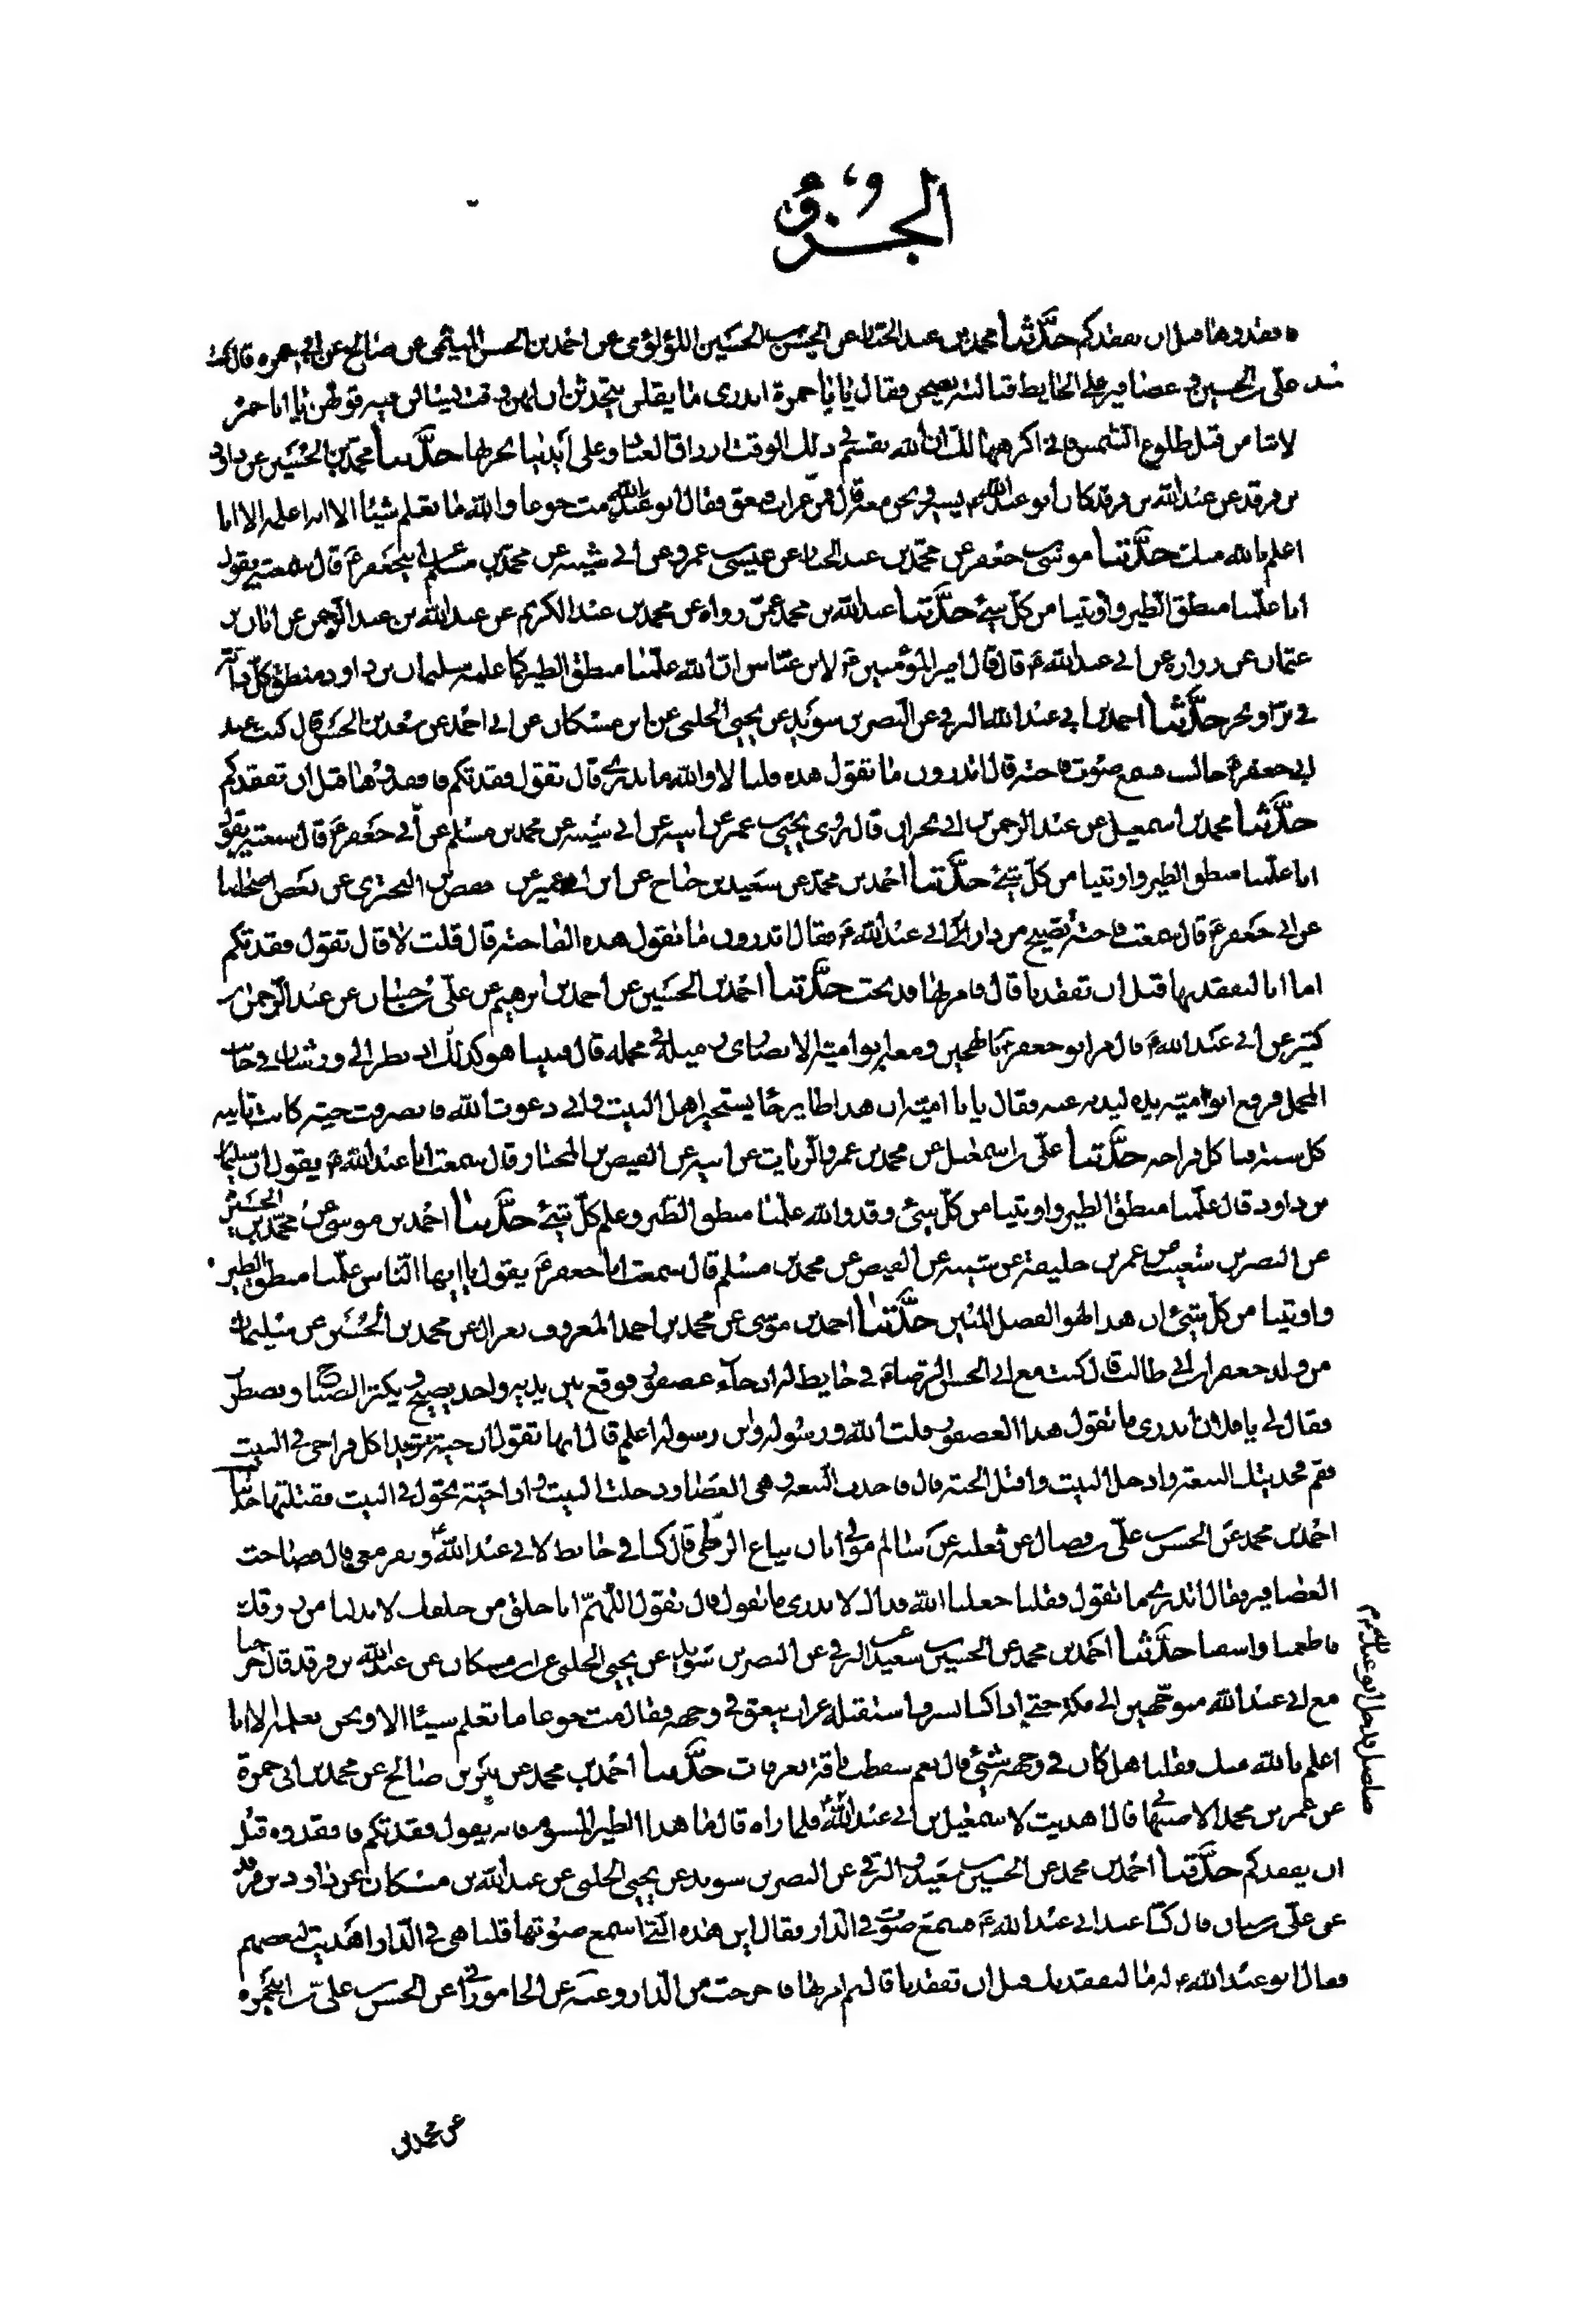 الجزؤ
فافقدوها قبل ان تفقدكم حدّثنا محمد بن عبد الجبار عن الحسن بن الحسين اللؤلؤى عن احمد بن الحسن الميثمى عن صالح عن ابى حمزه قال كنت
عند على بن الحسين ع وعصافير على الحايط قبالته يصحن فقال يا با حمزة اتدرى ما يقلن يتحدثن ان لهن وقت يسئالن فيه قوتهن يا ابا حمزه
لا تنامن قبل طلوع الشمس فانى اكرهها لك ان الله يقسم فى ذلك الوقت ارزاق العباد وعلى أيدينا يجريها حدّثنا محمد بن الحسين عن داود
بن فرقد عن عبد الله بن فرقد كان ابو عبد الله ع يسير ونحن معه قال فمر غراب فنعق فقال ابو عبد الله ع مت جوعا والله ما تعلم شيئا الا انا اعلمه الا انا
اعلم بالله منك حدّثنا موسى بن جعفر عن محمد بن عبد الجبار عن عيسى بن عمرو عن ابى شيبه عن محمد بن مسلم عن ابيجعفر ع قال سمعته يقول
انا علمنا منطق الطير واوتينا من كل شئ حدّثنا عبد الله بن محمد عمن رواه عن محمد بن عبد الكريم عن عبد الله بن عبد الرحمن عن ابان بن
عثمان عن زراره عن ابى عبد الله ع قال قال امير المؤمنين ع لابن عباس ان الله علمنا منطق الطير كما علمه سليمان بن داود ومنطق كل دابة
فى بر او بحر حدّثنا احمد بن ابى عبد الله البرقى عن النضر بن سويد عن يحيى الحلبى عن ابن مسكان عن ابى احمد عن سعد بن الحسن قال كنت عند
ابى جعفر ع جالسا فسمع صوت فاخته قال تدرون ما تقول هذه قلنا لا والله ما ندرى قال تقول فقدتكم فافقدوها قبل ان تفقدكم
حدّثنا محمد بن اسمعيل عن عبد الرحمن بن ابى نجران قال روى يحيى بن عمر عن ابيه عن ابى شيبه عن محمد بن مسلم عن أبى جعفر ع قال سمعته يقول
انا علمنا منطق الطير واوتينا من كل شئ حدّثنا احمد بن محمد عن سعيد بن جناح عن ابن ابى عمير عن حفص بن البخترى عن بعض اصحابنا
عن ابى جعفر ع قال سمعت فاخته تصيح من دار ابى عبد الله ع فقال اتدرون ما تقول هذه الفاخته قال قلت لا قال تقول فقدتكم
اما انا لنفقدنها قبل ان تفقدنا قال فامر بها فذبحت حدّثنا احمد بن الحسين عن احمد بن ابرهيم عن على بن حسان عن عبد الرحمن بن
كثير عن ابى عبد الله ع قال مر ابو جعفر ع بالهجين ومعه ابو امية الانصارى زميله فى محمله قال فبينا هو كذلك اذ نظر الى ورشان فى جانب
المحمل فرفع ابو امية يده ليذبه عنه فقال يا با امية ان هذا طاير جا يستجير اهل البيت وانى دعوت الله فانصرفت حية كانت تاتيه
كل سنة فتاكل فراخه حدّثنا على بن اسمعيل عن محمد بن عمرو الزيات عن ابيه عن الفيض بن المختار قال سمعت ابا عبد الله ع يقول ان سليمان
بن داود قال علمنا منطق الطير واوتينا من كل شئ وقد والله علمنا منطق الطير وعلم كل شئ حدّثنا احمد بن موسى عن محمد بن الحسين
عن النضر بن شعيب عن عمر بن خليفة عن شيبه عن الفيض عن محمد بن مسلم قال سمعت ابا جعفر ع يقول يا ايها الناس علمنا منطق الطير
واوتينا من كل شئ ان هذا لهو الفضل المبين حدّثنا احمد بن موسى عن محمد بن احمد المعروف بغزال عن محمد بن الحسين عن سليمان
من ولد جعفر بن ابى طالب قال كنت مع ابى الحسن الرضا ع فى حايط له اذ جآء عصفور فوقع بين يديه واخذ يصيح ويكثر الصياح ويضطرب
فقال لى يا فلان اتدرى ما تقول هذا العصفور قلت الله ورسوله وابن رسوله اعلم قال انها تقول ان حية تريد اكل فراخى فى البيت
فقم فخذ بيدك النسعة وادخل البيت واقتل الحية قال فاخذت النسعة وهى العصا ودخلت البيت واذا حية تجول فى البيت فقتلتها حدّثنا
احمد بن محمد عن الحسن بن على بن فضال عن ثعلبه عن سالم مولى ابان بياع الزطى قال كنا فى حايط لابى عبد الله ع ونفر معى قال فصاحت
العصافير فقال اتدرى ما تقول فقلنا جعلنا الله فداك لا ندرى ما تقول قال تقول اللهم انا خلق من خلقك لا بد لنا من رزقك
فاطعمنا واسقنا حدّثنا احمد بن محمد عن الحسين بن سعيد عن البرقى عن النضر بن سويد عن يحيى الحلبى عن ابن مسكان عن عبد الله بن فرقد قال خرجنا
مع ابى عبد الله متوجهين الى مكة حتى اذا كنا بسرف استقبله غراب ينعق فى وجهه فقال مت جوعا ما تعلم شيئا الا ونحن نعلمه الا انا
اعلم بالله منك فقلنا هل كان فى وجهه شئ قال نعم سقطت ناقة بعرفات حدّثنا احمد بن محمد عن بكر بن صالح عن محمد بن ابى حمزة
عن عمر بن محمد الاصبهانى قال اهديت لاسمعيل بن ابى عبد الله ع صلصلا فدخل ابو عبد الله ع فلما راه قال ما هذا الطير المشوم فانه يقول فقدتكم فافقدوه قبل
ان يفقدكم حدّثنا احمد بن محمد عن الحسين بن سعيد والبرقى عن النضر بن سويد عن يحيى الحلبى عن عبد الله بن مسكان عن داود بن فرقد
عن على بن سنان قال كنا عند ابى عبد الله ع فسمع صوت فى الدار فقال اين هذه التى اسمع صوتها قلنا هى فى الدار اهديت لبعضهم
فقال ابو عبد الله ع اما لنفقدنك قبل ان تفقدنا قال ثم امر بها فاخرجت من الدار وعنه عن الجامورانى عن الحسن بن على بن ابيحمزه
عن محمد بن